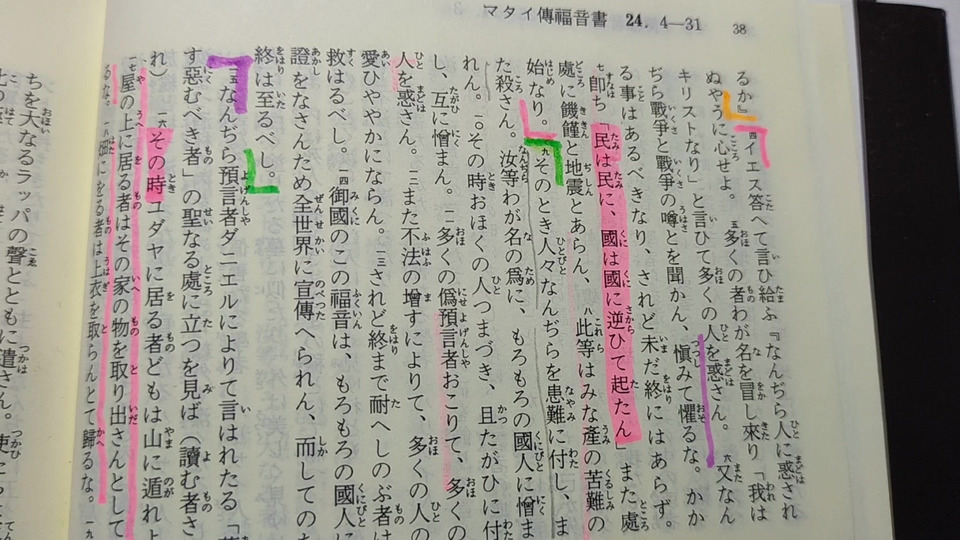 マタイ傳福音書 24. 4―31 38
るか』四イエス答へて言ひ給ふ『なんぢら人に惑され
ぬやうに心せよ。五多くの者わが名を冒し來り「我は
キリストなり」と言ひて多くの人を惑さん。六又なん
ぢら戰爭と戰爭の噂とを聞かん、愼みて懼るな。かか
る事はあるべきなり、されど未だ終にはあらず。
七即ち「民は民に、國は國に逆ひて起たん」また處
處に饑饉と地震とあらん、八此等はみな產の苦難の
始なり。九そのとき人々なんぢらを患難に付し、ま
た殺さん。汝等わが名の爲に、もろもろの國人に憎ま
れん。一〇その時おほくの人つまづき、且たがひに付
し、互に憎まん。一一多くの僞預言者おこりて、多くの
人を惑さん。一二また不法の增すによりて、多くの人の
愛ひややかにならん。一三されど終まで耐へしのぶ者は
救はるべし。一四御國のこの福音は、もろもろの國人に
證をなさんため全世界に宣傳へられん、而してのち
終は至るべし。
一五なんぢら預言者ダニエルによりて言はれたる「
す惡むべき者」の聖なる處に立つを見ば（讀む者さ
れ）一六その時ユダヤに居る者どもは山に遁れよ
一七屋の上に居る者はその家の物を取り出さんとして
るな。一八畑にをる者は上衣を取らんとて歸るな。一九
ちを大なるラッパの聲とともに遣さん。使